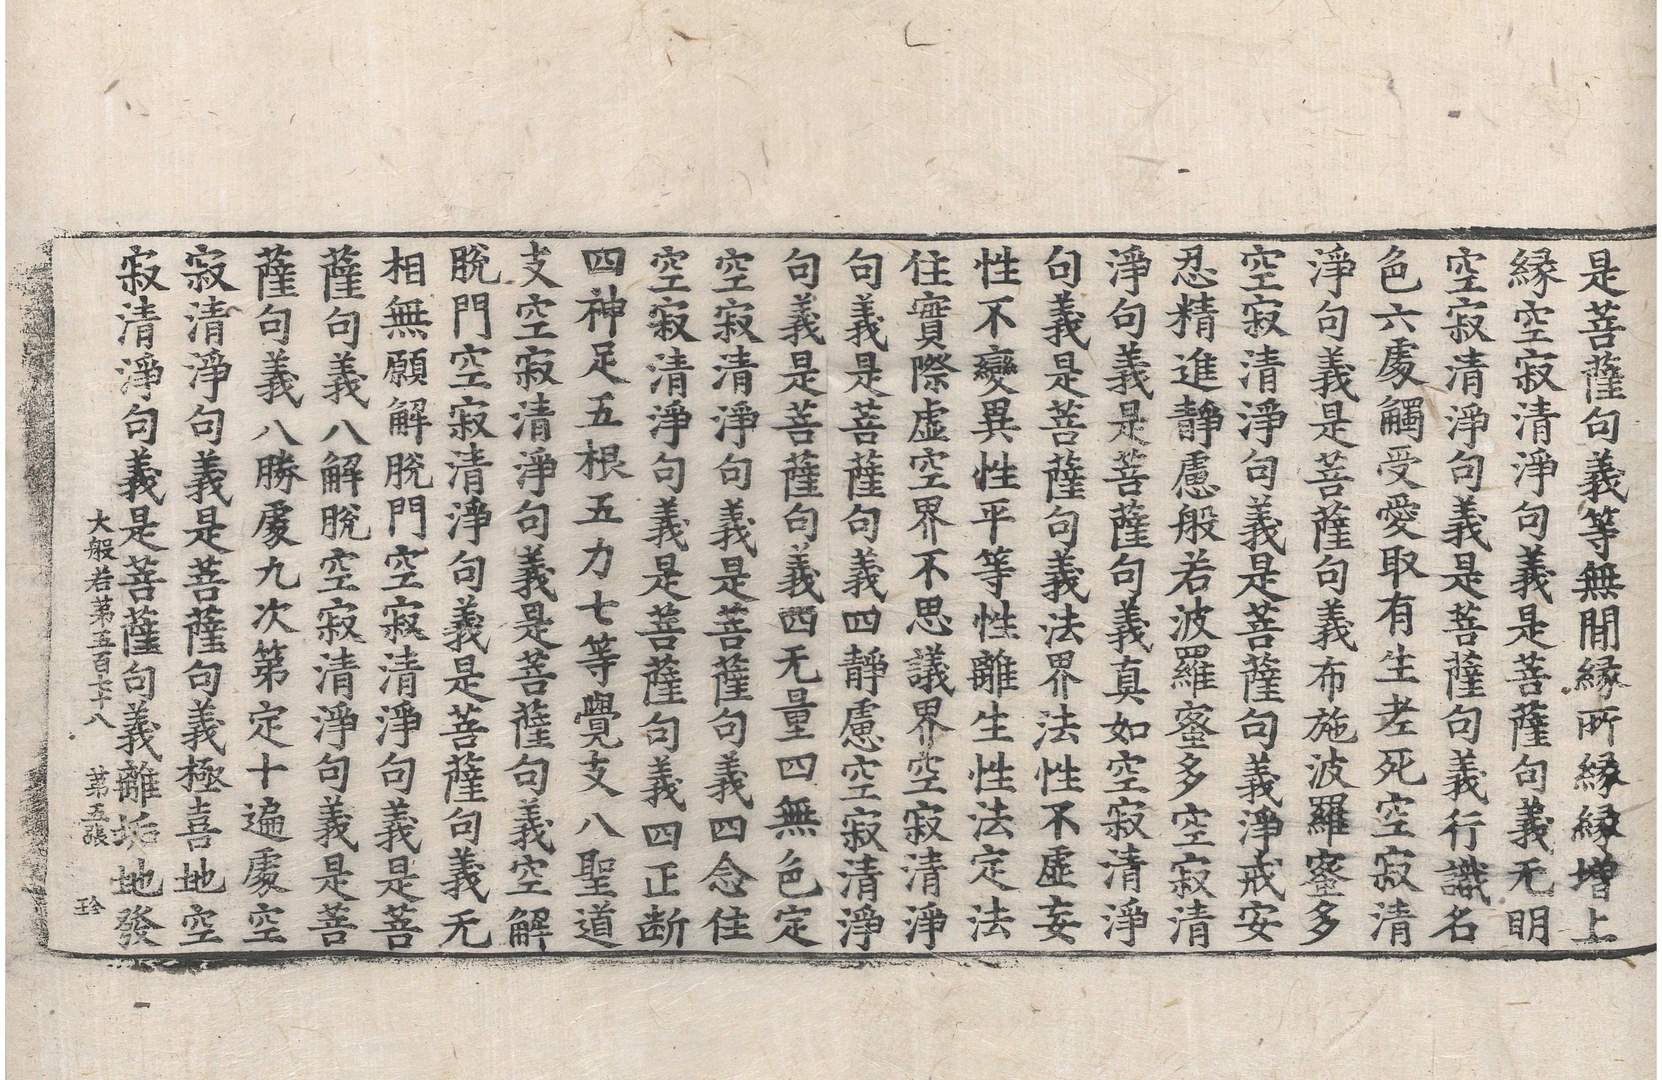 是菩薩句義等無閒縁所縁縁增上
縁空寂清淨句義是菩薩句義无明
空寂清淨句義是菩薩句義行識名
色六處觸受愛取有生老死空寂清
淨句義是菩薩句義布施波羅蜜多
空寂清淨句義是菩薩句義淨戒安
忍精進靜慮般若波羅蜜多空寂清
淨句義是菩薩句義真如空寂清淨
句義是菩薩句義法界法性不虛妄
性不變異性平等性離生性法定法
住實際虛空界不思議界空寂清淨
句義是菩薩句義四靜慮空寂清淨
句義是菩薩句義四无量四無色定
空寂清淨句義是菩薩句義四念住
空寂清淨句義是菩薩句義四正断
四神足五根五力七等覺支八聖道
支空寂清淨句義是菩薩句義空解
脫門空寂清淨句義是菩薩句義无
相無願解脫門空寂清淨句義是菩
薩句義八解脫空寂清淨句義是菩
薩句義八勝處九次第定十遍處空
寂清淨句義是菩薩句義極喜地空
寂清淨句義是菩薩句義離垢地發
大般若第五百七十八　第五張　珎